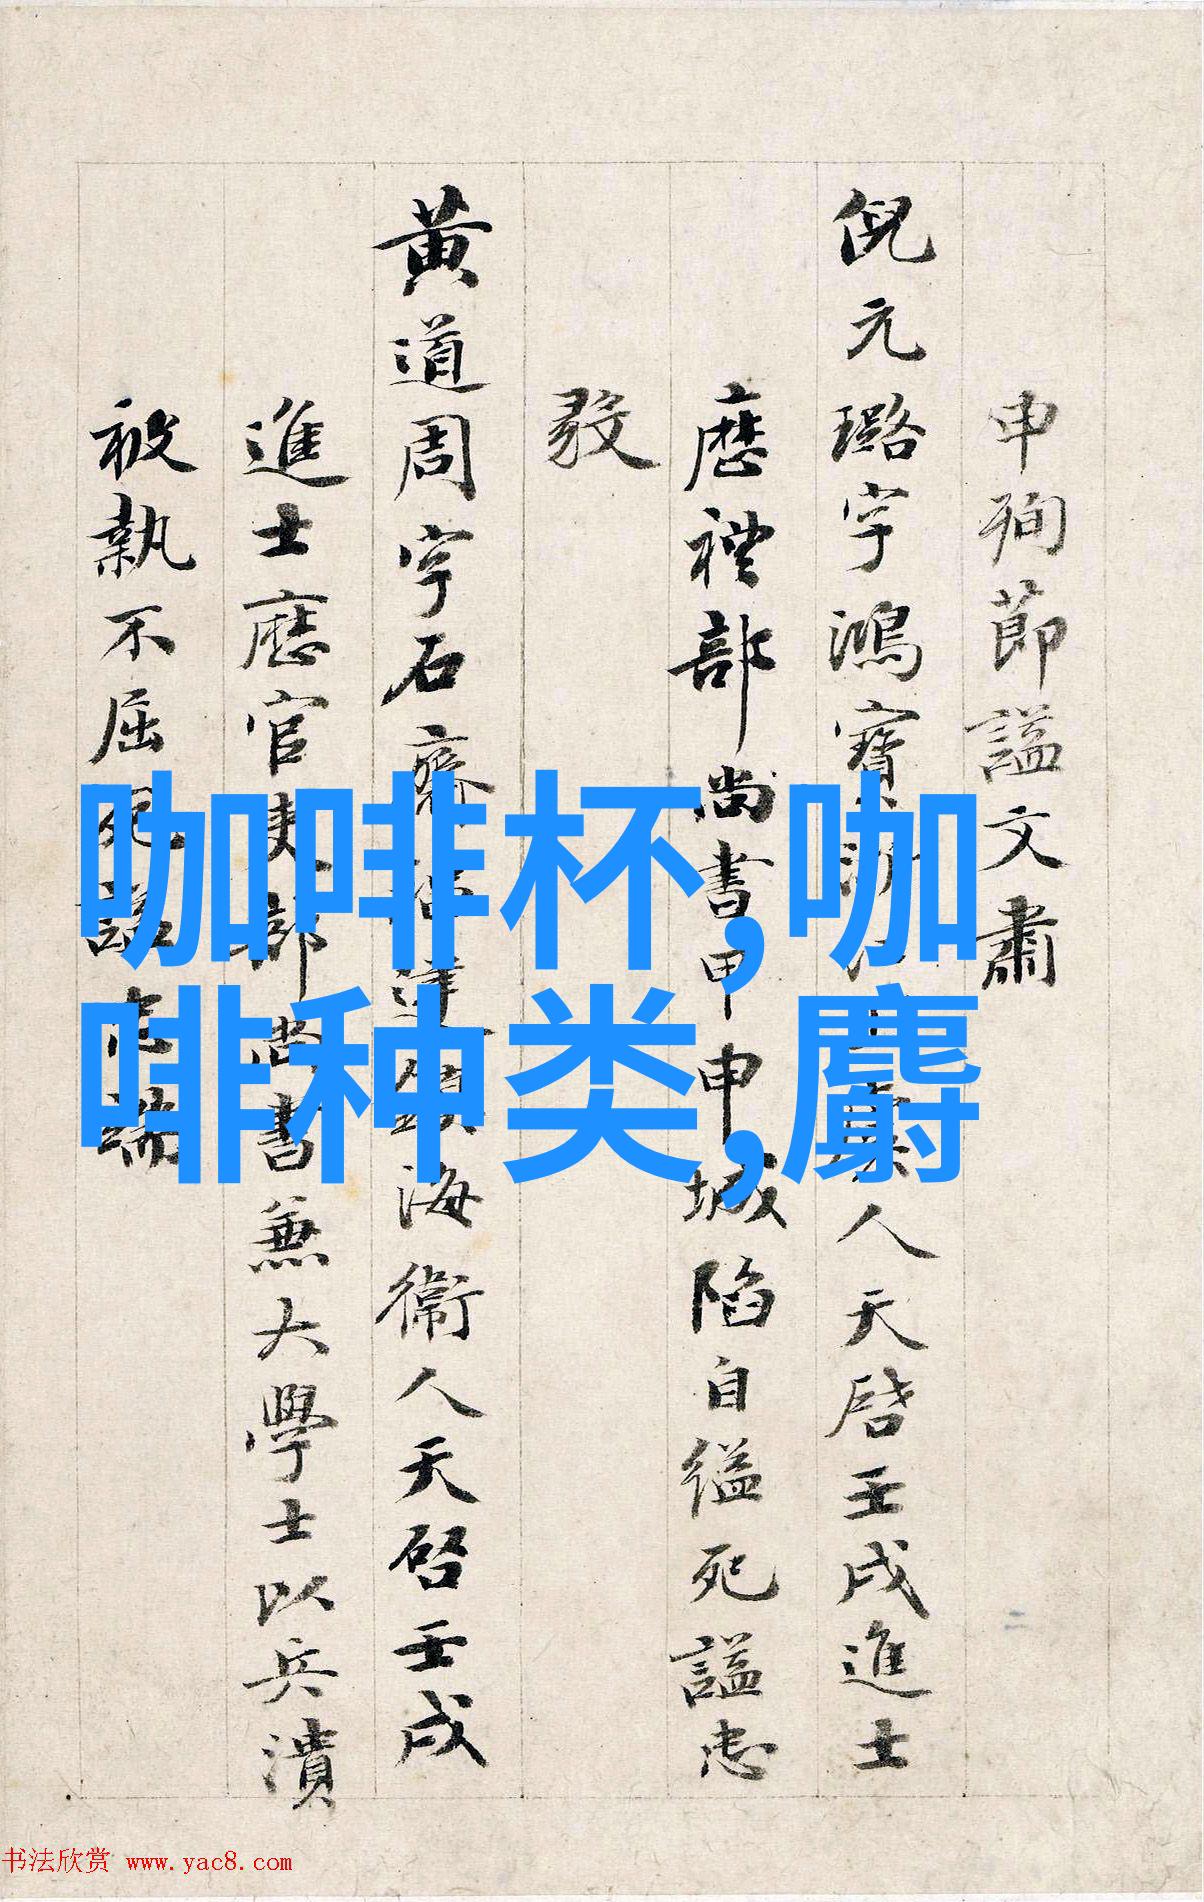 申殉節謚文肅
倪元璐字鴻寶浙人天啓壬戌進士
歷禮部尚書甲申城陷自縊死謚忠
黄道周字石齋海衞人天啓壬戌
進士歷官吏部尚書兼大學士以兵潰
被執不屈死謚忠端
咖啡杯,咖
啡种类,麝
书法欣赏 www.yac8.com